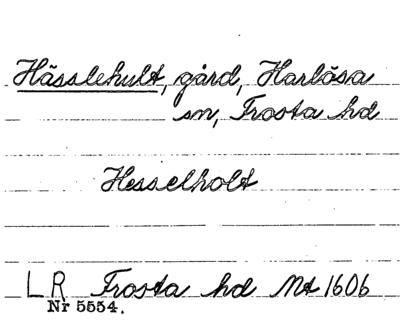 Hässlehult, gård, Harlösa
sn, Frosta hd
Hesselholt
LR Frosta hd Mt 1606
Nr 5554.